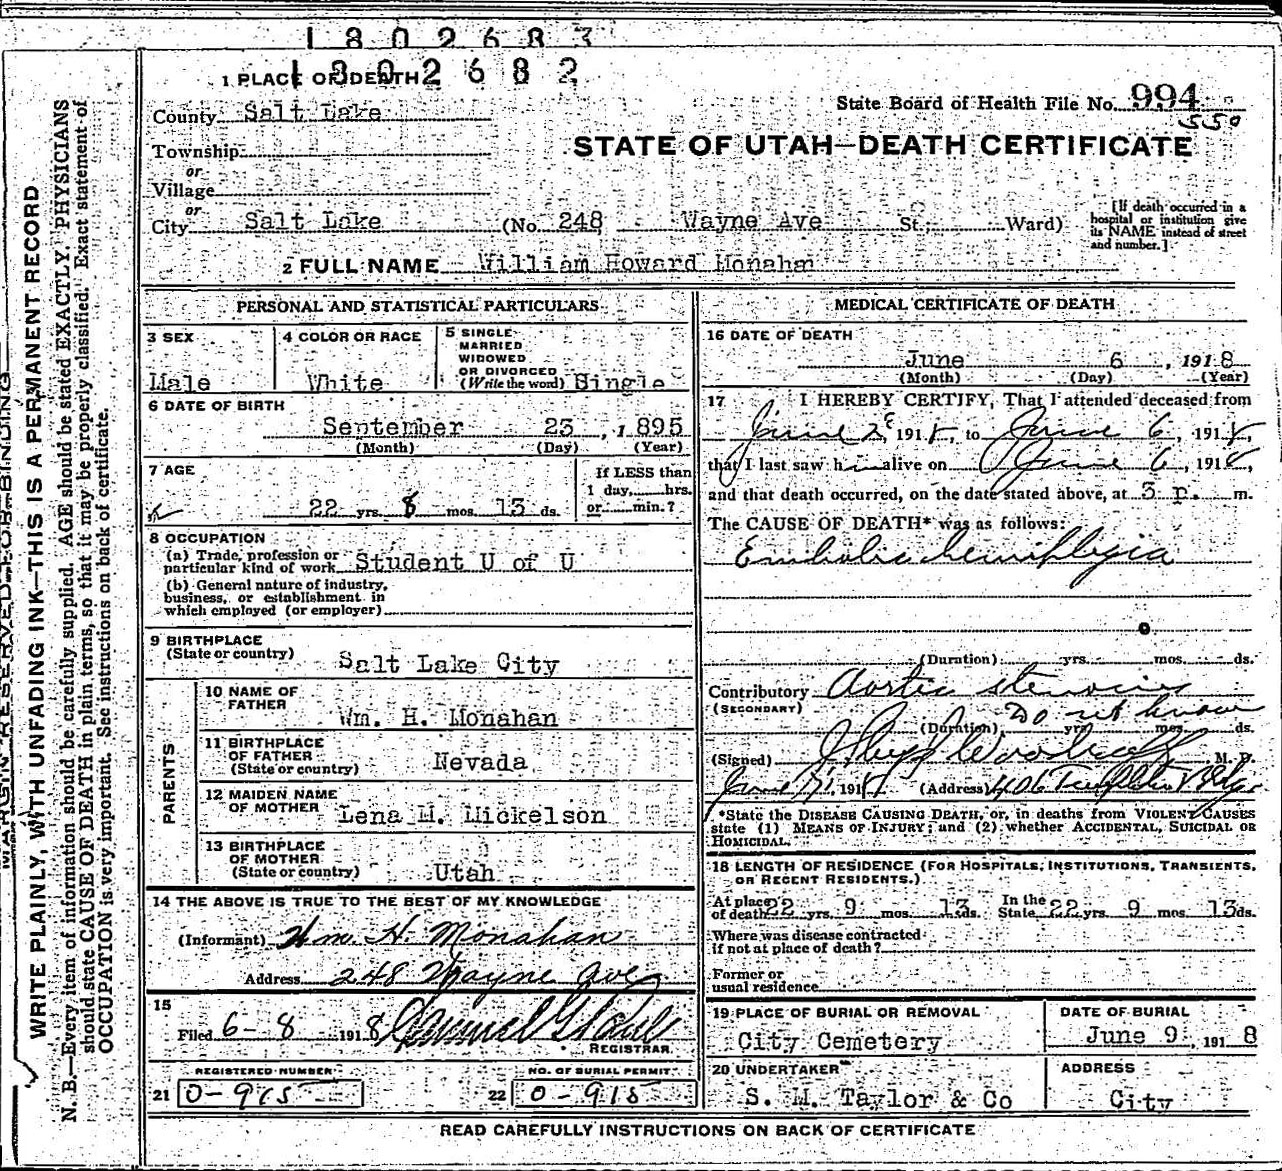 1802683
1802682
1 PLACE OF DEATH
State Board of Health File No. 994
550
County Salt Lake
STATE OF UTAH—DEATH CERTIFICATE
Township
or
Village
or
City Salt Lake (No. 248 Wayne Ave St.; Ward)
[If death occurred in a
hospital or institution give
its NAME instead of street
and number.]
2 FULL NAME William Howard Monahan
PERSONAL AND STATISTICAL PARTICULARS
3 SEX
Male
4 COLOR OR RACE
White
5 SINGLE
MARRIED
WIDOWED
OR DIVORCED
(Write the word) Single
6 DATE OF BIRTH
September 23, 1895
(Month) (Day) (Year)
7 AGE
22 yrs. 8 mos. 13 ds.
If LESS than
1 day, hrs.
or min.?
8 OCCUPATION
(a) Trade, profession or
particular kind of work Student U of U
(b) General nature of industry,
business, or establishment in
which employed (or employer)
9 BIRTHPLACE
(State or country) Salt Lake City
PARENTS
10 NAME OF
FATHER Wm. H. Monahan
11 BIRTHPLACE
OF FATHER
(State or country) Nevada
12 MAIDEN NAME
OF MOTHER Lena M. Mickelson
13 BIRTHPLACE
OF MOTHER
(State or country) Utah
14 THE ABOVE IS TRUE TO THE BEST OF MY KNOWLEDGE
(Informant) Wm. H. Monahan
Address 248 Wayne Ave
15
Filed 6-8 1918
REGISTRAR
REGISTERED NUMBER
21 0-915
NO. OF BURIAL PERMIT
22 0-915
MEDICAL CERTIFICATE OF DEATH
16 DATE OF DEATH
June 6, 1918
(Month) (Day) (Year)
17 I HEREBY CERTIFY, That I attended deceased from
June 1918, to June 6, 1918,
that I last saw him alive on June 6, 1918,
and that death occurred, on the date stated above, at 3 p. m.
The CAUSE OF DEATH* was as follows:
Embolic hemiplegia
(Duration) yrs. mos. ds.
Contributory Aortic stenosis
(SECONDARY)
Do not know
(Duration) yrs. mos. ds.
(Signed) M. D.
June 1918 (Address) 406 Templeton Bldg
*State the DISEASE CAUSING DEATH, or, in deaths from VIOLENT CAUSES
state (1) MEANS OF INJURY; and (2) whether ACCIDENTAL, SUICIDAL OR
HOMICIDAL.
18 LENGTH OF RESIDENCE (FOR HOSPITALS, INSTITUTIONS, TRANSIENTS,
OR RECENT RESIDENTS.)
At place
of death 22 yrs. 9 mos. 13 ds.
In the
State 22 yrs. 9 mos. 13 ds.
Where was disease contracted
if not at place of death?
Former or
usual residence
19 PLACE OF BURIAL OR REMOVAL
City Cemetery
DATE OF BURIAL
June 9, 1918
20 UNDERTAKER
S. M. Taylor & Co
ADDRESS
City
READ CAREFULLY INSTRUCTIONS ON BACK OF CERTIFICATE
MARGIN RESERVED FOR BINDING
WRITE PLAINLY, WITH UNFADING INK—THIS IS A PERMANENT RECORD
N. B.—Every item of information should be carefully supplied. AGE should be stated EXACTLY. PHYSICIANS
should state CAUSE OF DEATH in plain terms, so that it may be properly classified. Exact statement of
OCCUPATION is very important. See instructions on back of certificate.